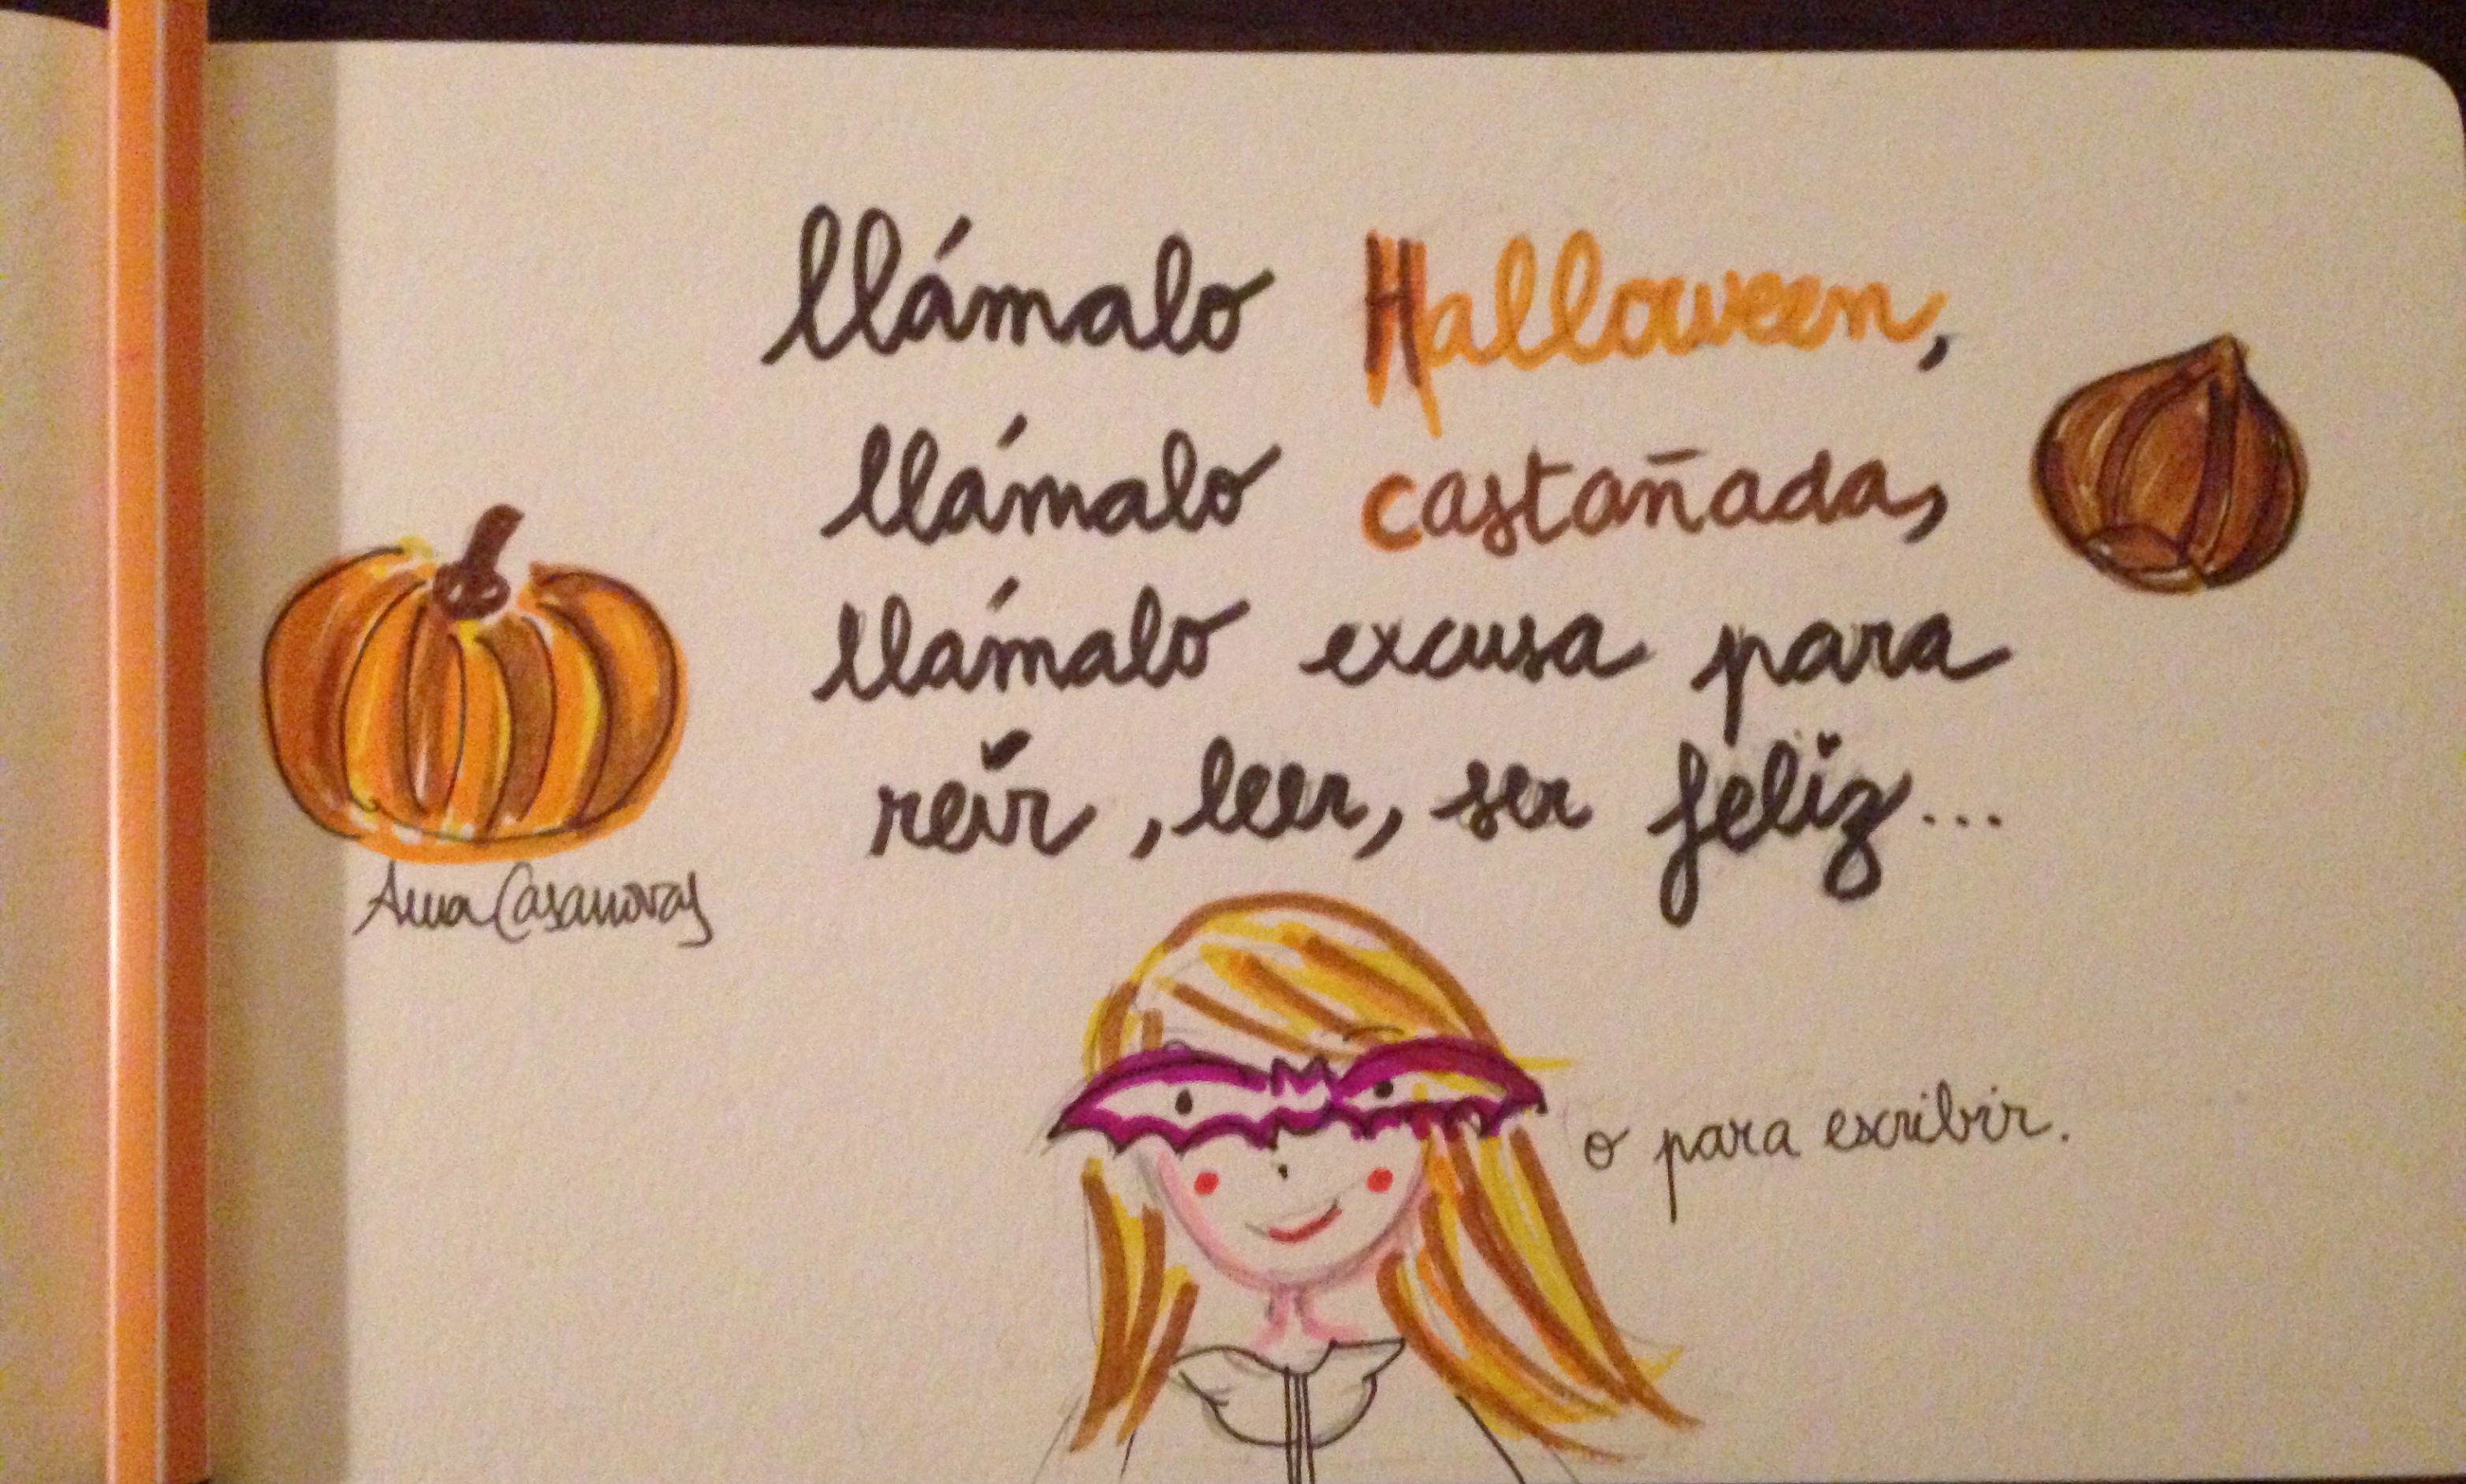 llámalo Halloween,
llámalo castañada,
llámalo excusa para
reír, leer, ser feliz...
Anna Casanovas
o para escribir.